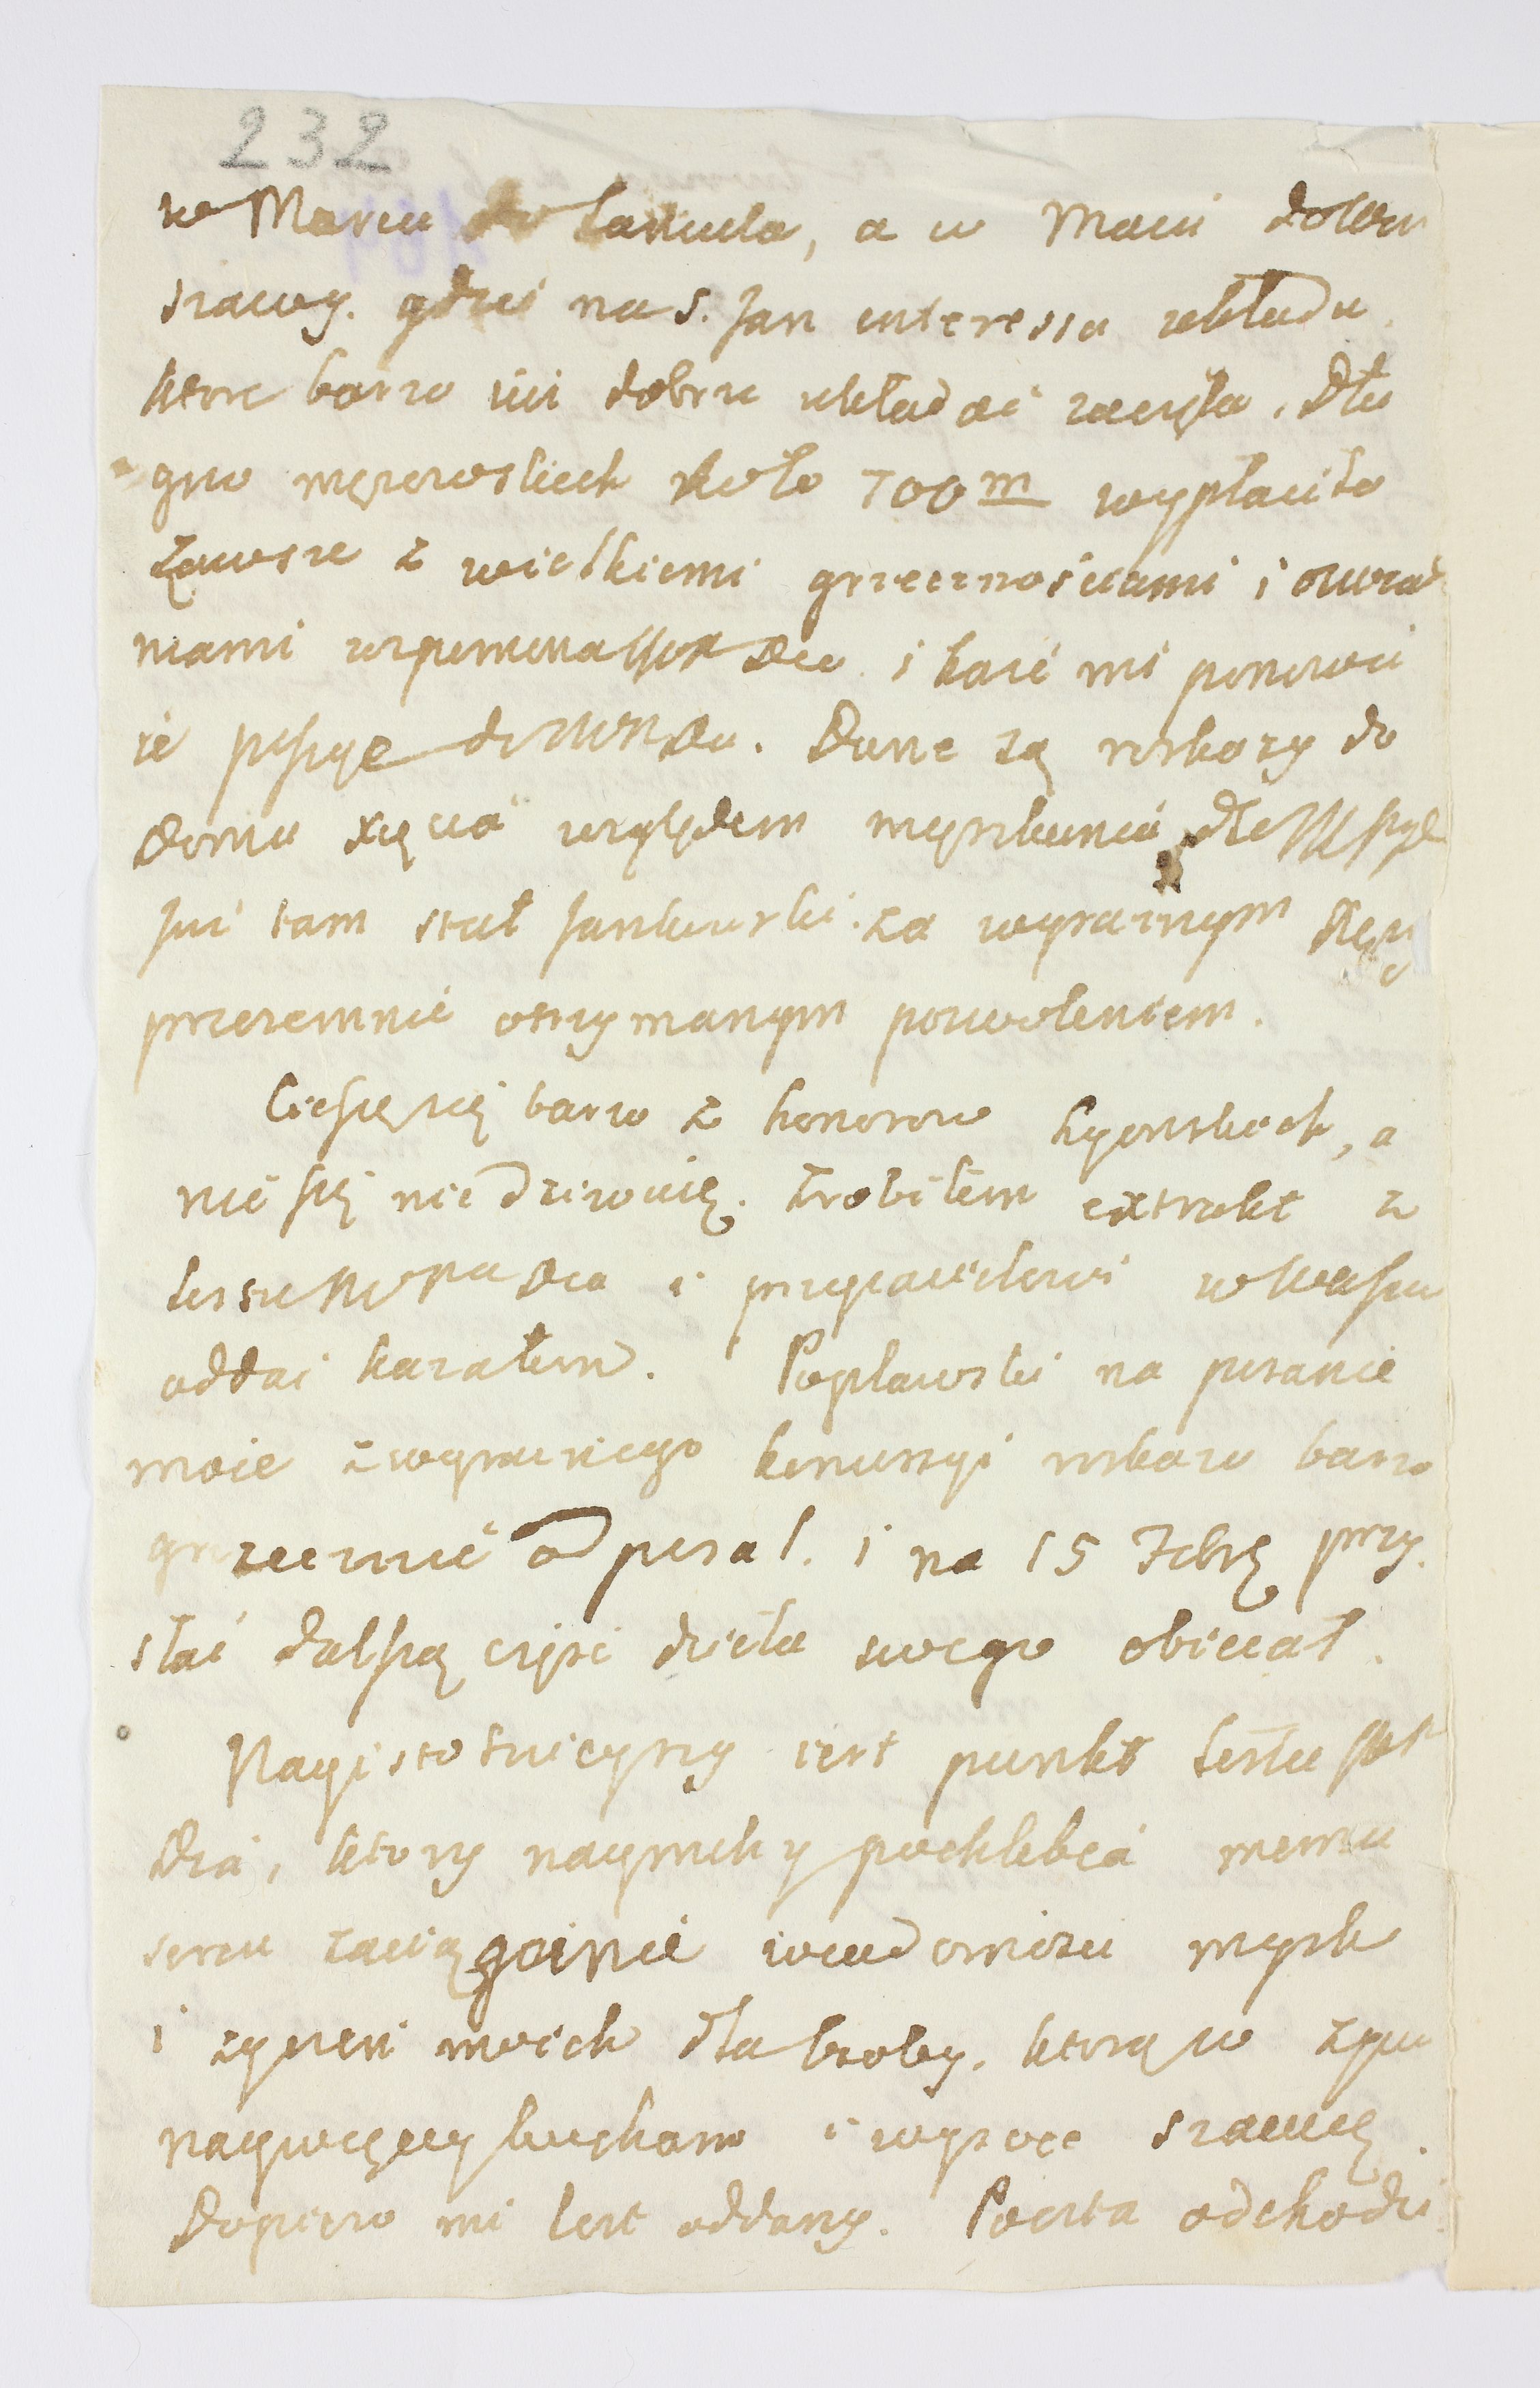 232
w Marcu do Łańcuta, a w Maiu do War
szawy. gdzie na S. Jan interessa układa,
ktore barzo iui dobrze układać zaczęła. Dłu
gow mężowskich koło 700 m wypłaciła
Zawsze z wielkiemi grzecznościami i
niami wspomina i każe mi ponowić
że pisze do Dane są roskazy do
Domu xięcia względem myszkania dla
Jui tam stał Jankowski. za wyraznym
przezemnie otrzymanym pozwoleniem.
Cieszę się barzo z honorow Lyonskich, a
nie się nie dziwuię. Zrobiłem extrakt z
listu i przyiacielowi w
oddać kazałem. Popławski na pisanie
moie z wyraznego kommissyi roskazu barzo
grzecznie odpisał. i na 15 7brę przy.
słać dalszą część dzieła swego obiecał.
Nayistotnieyszy iest punkt listu
Dia, ktory naymilszy pochlebia memu
sercu zaciągaienie wiadomości myśli
i życzen moich dla Osoby, ktorą w życiu
naywięcey kocham i wysoce szacuię.
Dopiero mi list oddany. Poczta odchodzi